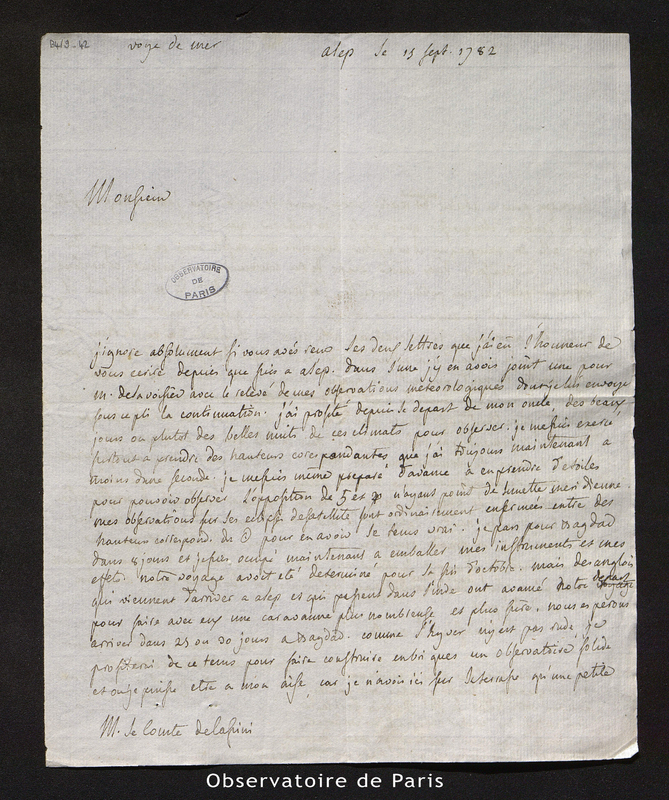 D4/9-42
voye de mer
alep le 15 sept. 1782
Monsieur
OBSERVATOIRE
DE
PARIS
j'ignore absolument si vous avés reçu les deux lettres que j'ai eu l'honneur de
vous ecrire depuis que suis a alep. dans l'une j'y en avois joint une pour
m. delavoisier avec le relevé de mes observations méteorologiques dont je lui envoye
sous ce pli la continuation. j'ai profité depuis le depart de mon oncle des beaux
jours ou plutot des belles nuits de ces climats pour observer. je me suis exercé
surtout a prendre des hauteurs correspondantes que j'ai toujours maintenant a
moins d'une seconde. je me suis meme preparé d'avance a en prendre d'etoiles
pour pouvoir observer l'opposition de ♄ et ♃ n'ayant point de lunette meridienne.
mes observations sur les eclipses de satellite sont ordinairement enfermées entre des
hauteurs correspond. du ☉ pour en avoir le tems vrai. je pars pour Bagdad
dans 8 jours et je suis occupé maintenant a emballer mes instruments et mes
effets. notre voyage avoit eté determiné pour la fin d'octobre. mais des anglois
qui viennent d'arriver a alep et qui passent dans l'inde ont avancé notre depart
pour faire avec eux une caravanne plus nombreuse et plus sure. nous esperons
arriver dans 25 ou 30 jours a Bagdad. comme l'hyver n'y est pas rude, je
profiterai de ce tems pour faire construire en briques un observatoire solide
et ou je puisse etre a mon aise, car je n'avois ici sur la terrasse qu'une petite
M. le Comte de Cassini
Observatoire de Paris